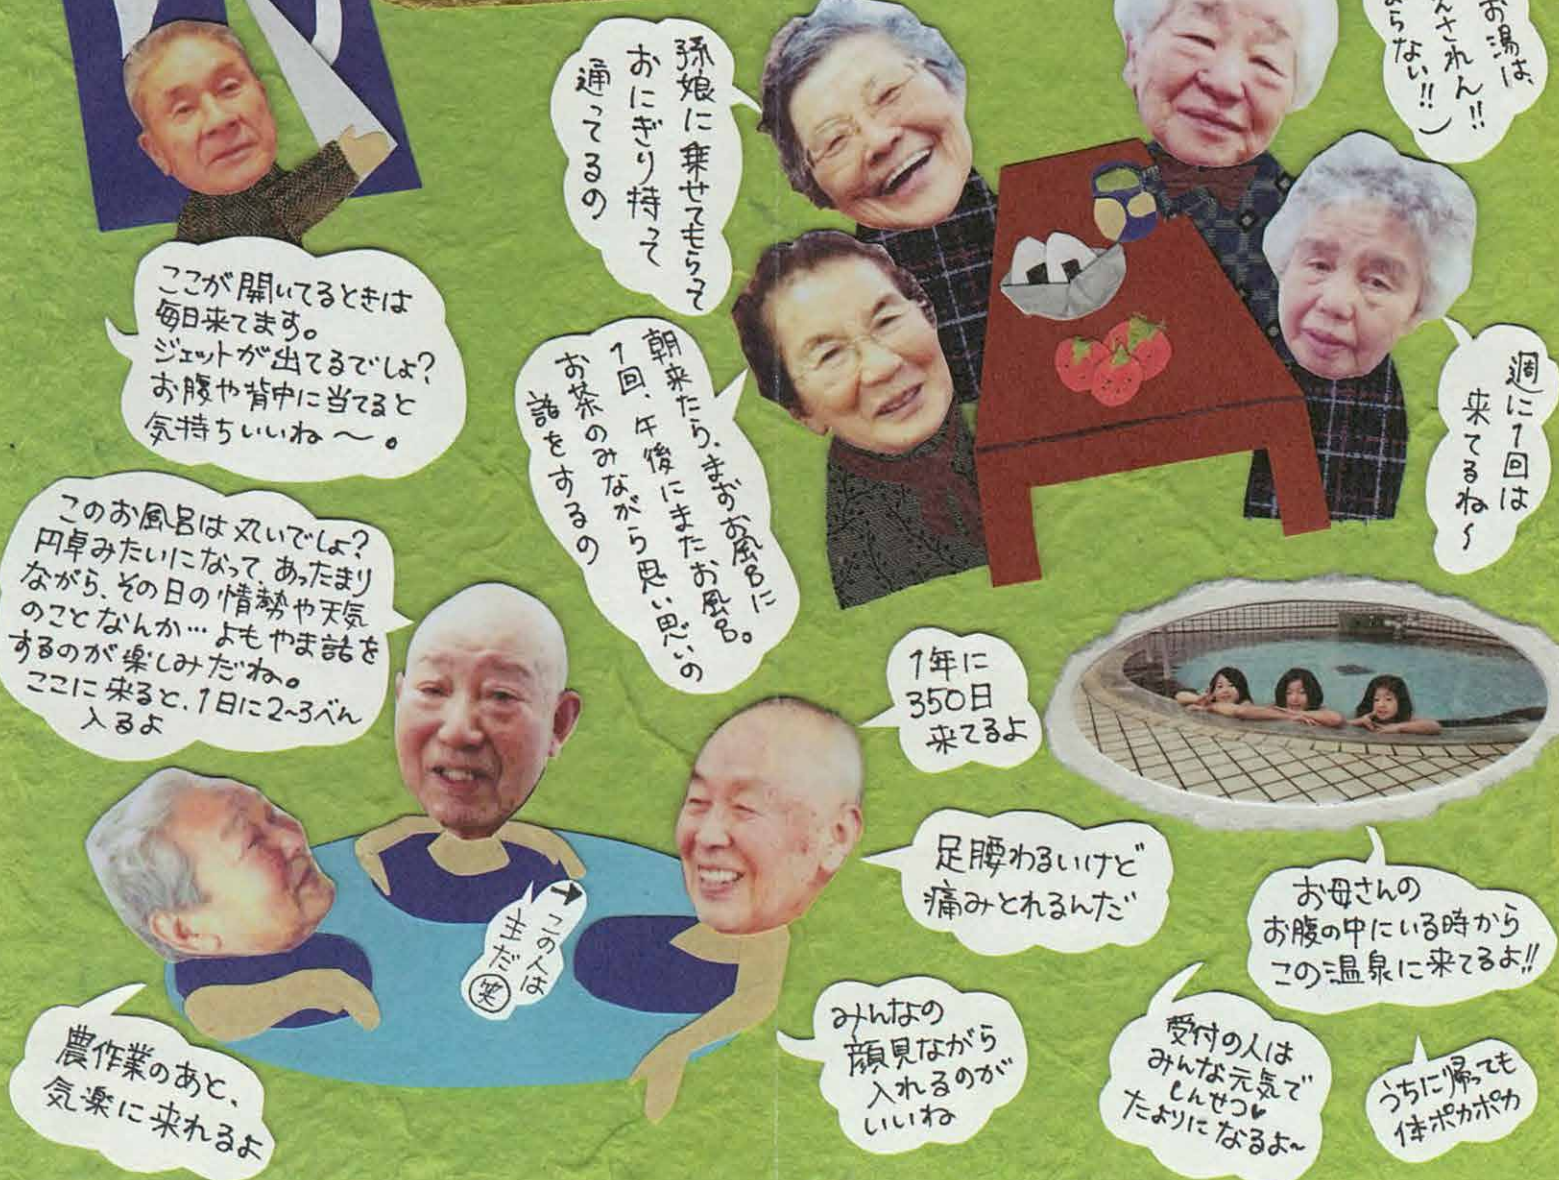 お湯は、
孫娘に乗せてもらって
おにぎり持って
通ってるの
ここが開いてるときは
毎日来てます。
ジェットが出てるでしょ?
お腹や背中に当てると
気持ちいいね〜。
朝来たら、まずお風呂に
1回、午後にまたお風呂。
お茶のみながら思い思いの
話をするの
週に1回は
来てるね〜
このお風呂は丸いでしょ?
円卓みたいになって、あったまり
ながら、その日の情勢や天気
のことなんか…よもやま話を
するのが楽しみだね。
ここに来ると、1日に2~3べん
入るよ
1年に
350日
来てるよ
足腰わるいけど
痛みとれるんだ
→この人は
主だ
笑
お母さんの
お腹の中にいる時から
この温泉に来てるよ!!
農作業のあと、
気楽に来れるよ
みんなの
顔見ながら
入れるのが
いいね
受付の人は
みんな元気で
しんせつ♥
たよりになるよ~
うちに帰っても
体ポカポカ